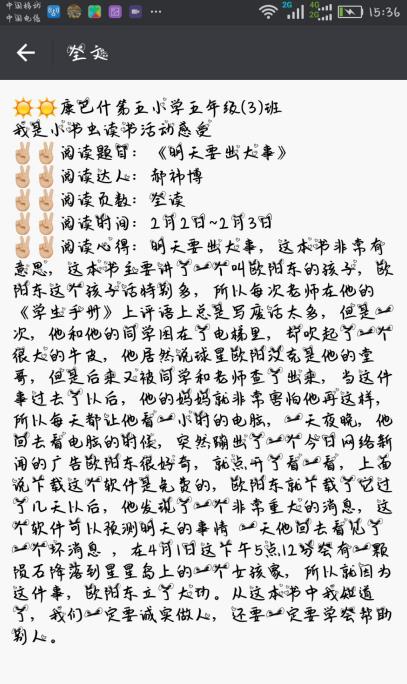 中国移动
中国电信
2G
4G
2G
15:36
全文
康巴什第五小学五年级(3)班
我是小书虫读书活动感受
阅读题目：《明天要出大事》
阅读达人：郝祎博
阅读页数：全读
阅读时间：2月2日~2月3日
阅读心得：明天要出大事，这本书非常有
意思，这本书主要讲了一个叫欧阳东的孩子，欧
阳东这个孩子话特别多，所以每次老师在他的
《学生手册》上评语上总是写废话太多，但是一
次，他和他的同学困在了电梯里，却吹起了一个
很大的牛皮，他居然说球星欧阳汶克是他的堂
哥，但是后来又被同学和老师查了出来，当这件
事过去了以后，他的妈妈就非常害怕他再这样，
所以每天都让他看一小时的电脑，一天夜晚，他
回去看电脑的时候，突然蹦出了一个今日网络新
闻的广告欧阳东很好奇，就点开了看一看，上面
说下载这个软件是免费的，欧阳东就下载了它过
了几天以后，他发现了一个非常重大的消息，这
个软件可以预测明天的事情 一天他回去看见了
一个坏消息 ，在4月1日这下午5点12分会有一颗
陨石降落到星星岛上的一个女孩家，所以就因为
这件事，欧阳东立了大功。从这本书中我知道
了，我们一定要诚实做人，还要一定要学会帮助
别人。